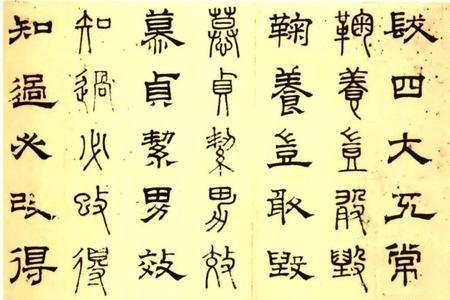 髮四大五常
鞠養豈敢毀
鞠養豈敢毀
慕貞絜男效
慕貞絜男效
知過必改得
知過必改得